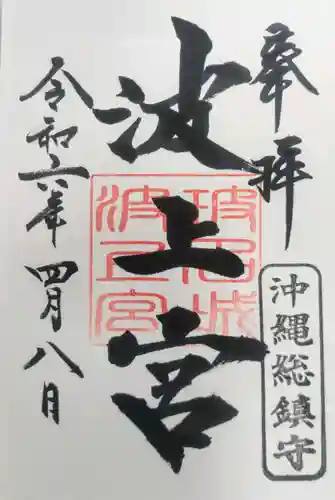 奉拝
沖縄総鎮守
波上宮
波上宮
令和六年四月八日